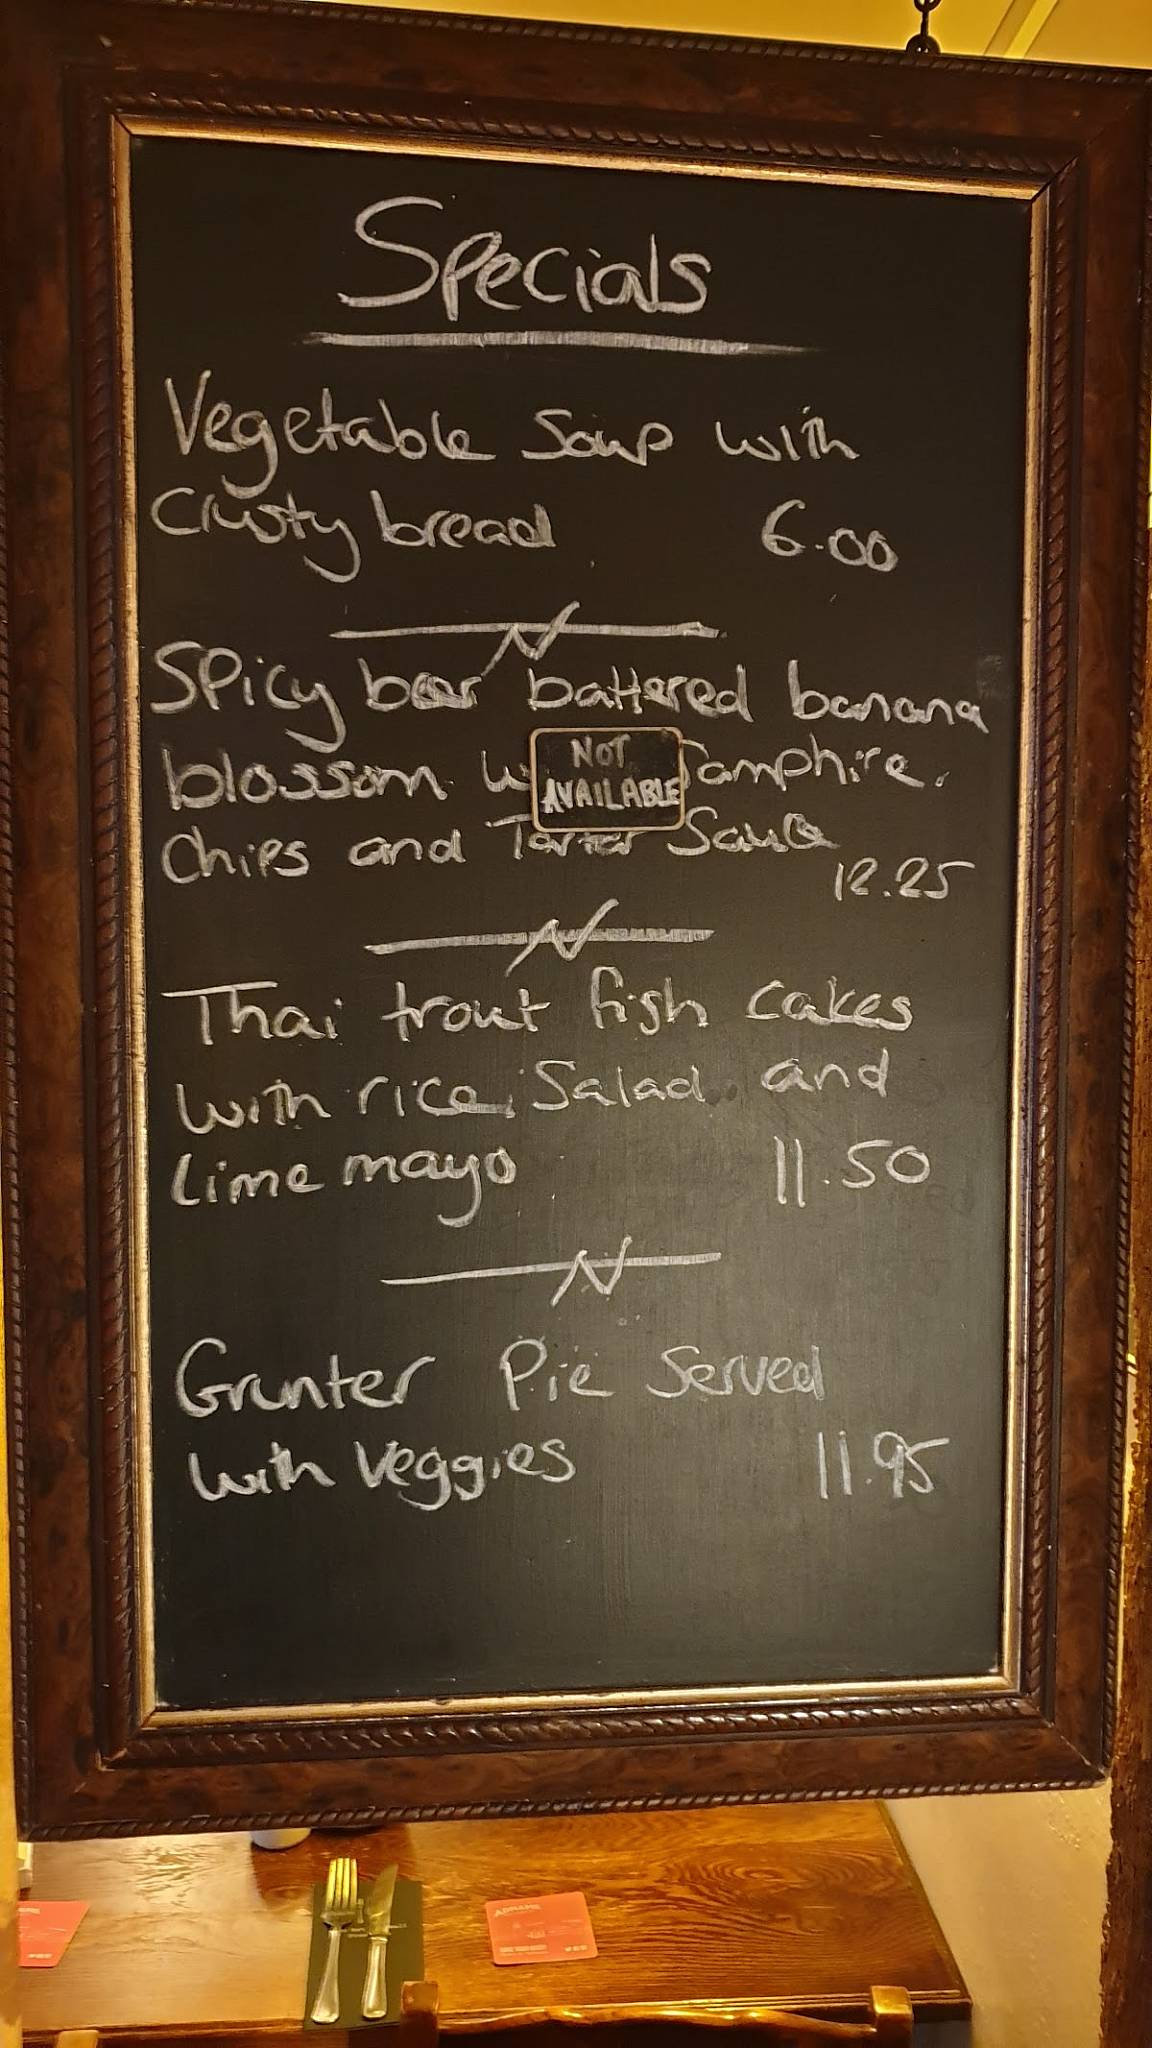 Specials
Vegetable Soup with
Crusty bread 6.00
Spicy beer battered banana
blossom. Samphire.
NOT
AVAILABLE
Chips and Tartar Sauce
12.25
Thai trout fish cakes
with rice, Salad and
lime mayo 11.50
Grunter Pie Served
with veggies 11.95
ADNAMS